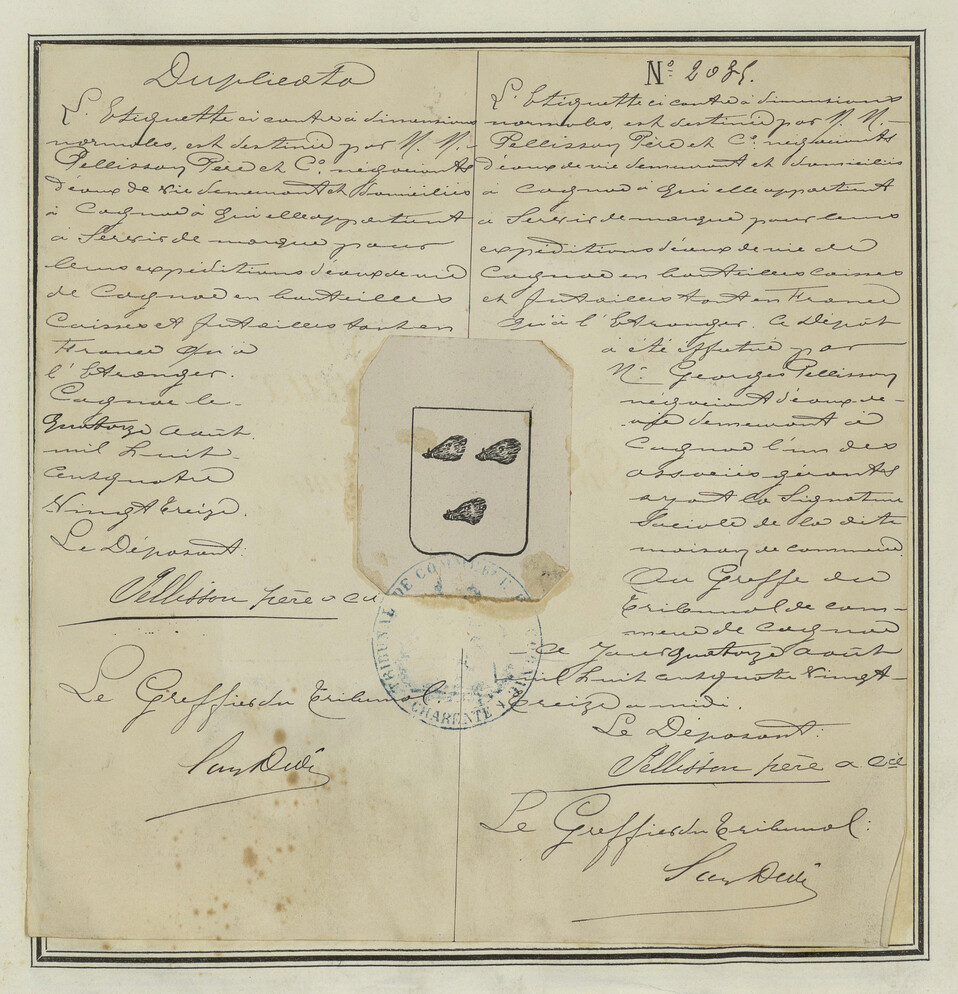 Duplicata
L'Etiquette ci contre à dimensions
normales, est destinée par M. M.
Pellisson Père et Cie négociants
d'eaux de vie demeurant et domiciliés
à Cognac à qui elle appartient
à Servir de marque pour
leurs expéditions d'eaux de vie
de Cognac en bouteilles
Caisses et futailles tant en
France qu'à
l'Etranger.
Cognac le
quatorze Août
mil huit
cent quatre
Vingt treize.
Le Déposant:
Pellisson père & Cie
Le Greffier du Tribunal.
N° 2035.
L'Etiquette ci contre à dimensions
normales, est destinée par M. M.
Pellisson Père et Cie négociants
d'eaux de vie demeurant et domiciliés
à Cognac à qui elle appartient
à Servir de marque pour leurs
expéditions d'eaux de vie de
Cognac en bouteilles caisses
et futailles tant en France
qu'à l'Etranger. Ce Dépôt
à été effectué par
Mr Georges Pellisson
négociant d'eaux de
vie demeurant à
Cognac l'un des
associés gérants
ayant la Signature
Sociale de la dite
maison de commerce
Au Greffe du
Tribunal de com-
merce de Cognac
ce jour quatorze août
mil huit cent quatre Vingt
treize à midi.
Le Déposant:
Pellisson père & Cie
Le Greffier du Tribunal:
TRIBUNAL DE COMMERCE
CHARENTE